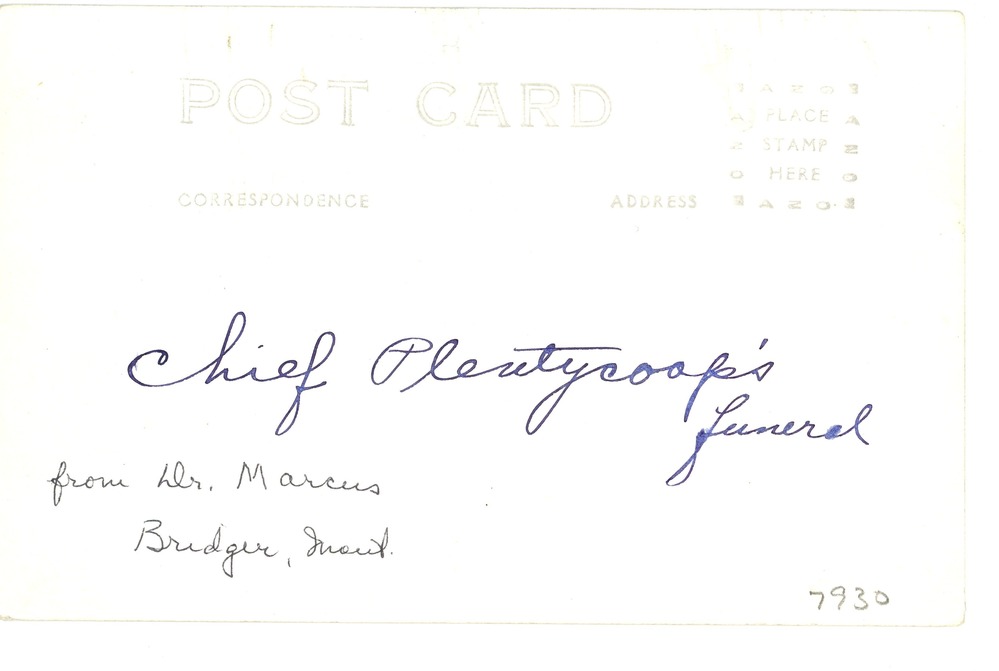 POST CARD
AZO
A PLACE A
Z STAMP Z
O HERE O
AZO
CORRESPONDENCE ADDRESS
Chief Plentycoop's
funeral
from Dr. Marcus
Bridger, Mont.
7930